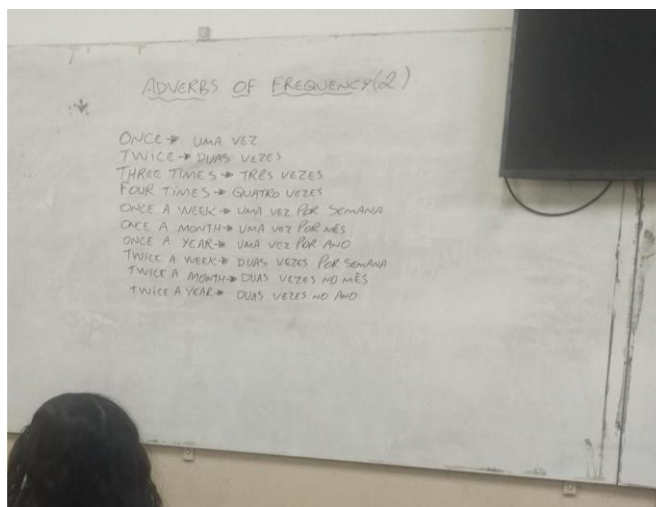 ADVERBS OF FREQUENCY(2)
ONCE → UMA VEZ
TWICE → DUAS VEZES
THREE TIMES → TRÊS VEZES
FOUR TIMES → QUATRO VEZES
ONCE A WEEK → UMA VEZ POR SEMANA
ONCE A MONTH → UMA VEZ POR MÊS
ONCE A YEAR → UMA VEZ POR ANO
TWICE A WEEK → DUAS VEZES POR SEMANA
TWICE A MONTH → DUAS VEZES NO MÊS
TWICE A YEAR → DUAS VEZES NO ANO